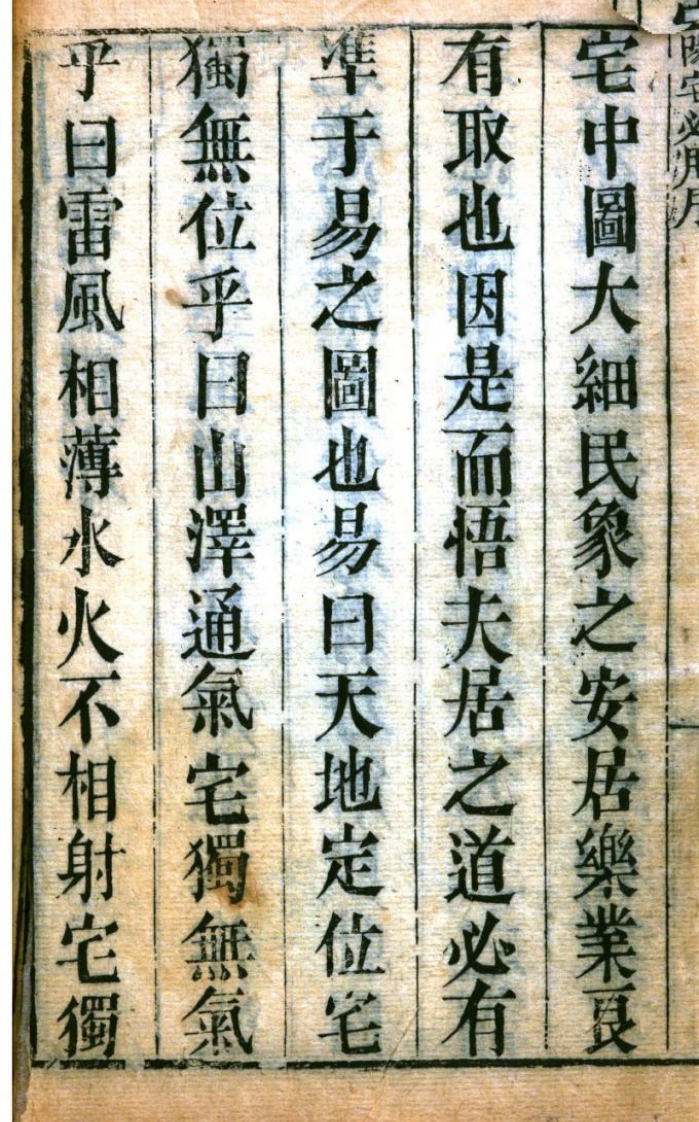 宅中圖大細民象之安居樂業良
有取也因是而悟夫居之道必有
準于易之圖也易曰天地定位宅
獨無位乎曰山澤通氣宅獨無氣
乎曰雷風相薄水火不相射宅獨